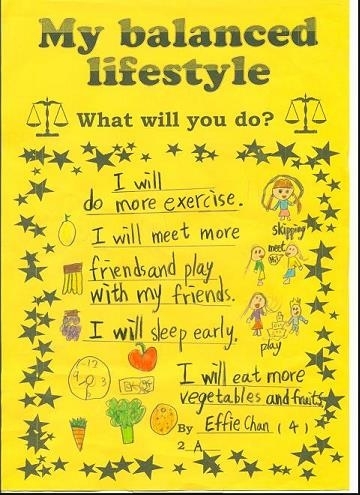 My balanced
lifestyle
What will you do?
I will
do more exercise.
skipping
I will meet more
meet
Hi
friends and play
with my friends.
I will sleep early.
play
12
9 3
6
I will eat more
vegetables and fruits.
By Effie Chan (4)
2 A